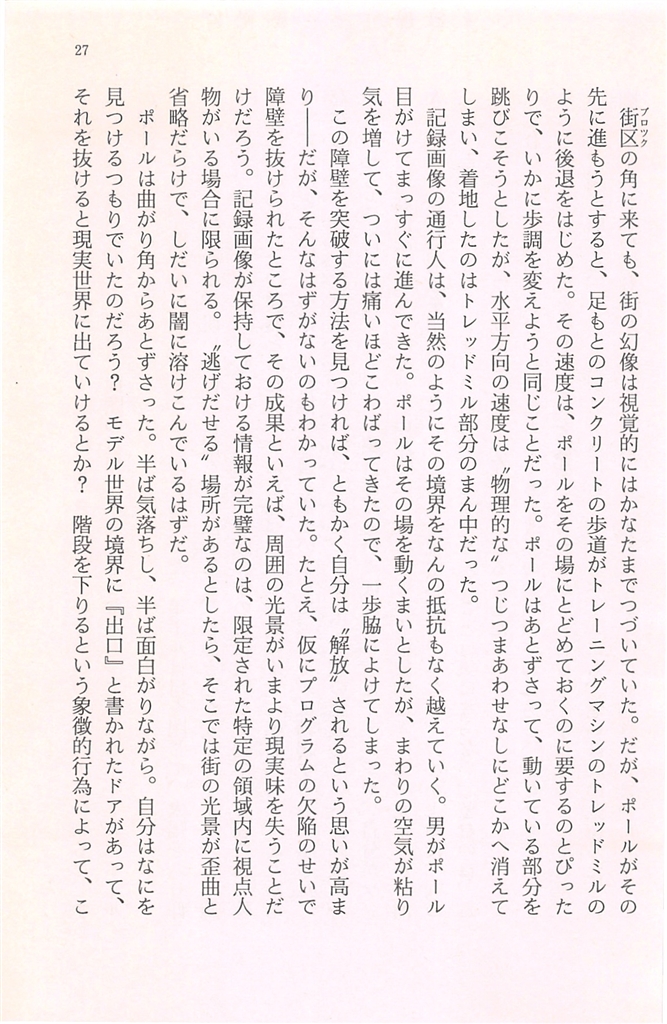 27
街区の角に来ても、街の幻像は視覚的にはかなたまでつづいていた。だが、ポールがその
ブロック
先に進もうとすると、足もとのコンクリートの歩道がトレーニングマシンのトレッドミルの
ように後退をはじめた。その速度は、ポールをその場にとどめておくのに要するのとぴった
りで、いかに歩調を変えようと同じことだった。ポールはあとずさって、動いている部分を
跳びこそうとしたが、水平方向の速度は〝物理的な〟つじつまあわせなしにどこかへ消えて
しまい、着地したのはトレッドミル部分のまん中だった。
記録画像の通行人は、当然のようにその境界をなんの抵抗もなく越えていく。男がポール
目がけてまっすぐに進んできた。ポールはその場を動くまいとしたが、まわりの空気が粘り
気を増して、ついには痛いほどこわばってきたので、一歩脇によけてしまった。
この障壁を突破する方法を見つければ、ともかく自分は〝解放〟されるという思いが高ま
り――だが、そんなはずがないのもわかっていた。たとえ、仮にプログラムの欠陥のせいで
障壁を抜けられたところで、その成果といえば、周囲の光景がいまより現実味を失うことだ
けだろう。記録画像が保持しておける情報が完璧なのは、限定された特定の領域内に視点人
物がいる場合に限られる。〝逃げだせる〟場所があるとしたら、そこでは街の光景が歪曲と
省略だらけで、しだいに闇に溶けこんでいるはずだ。
ポールは曲がり角からあとずさった。半ば気落ちし、半ば面白がりながら。自分はなにを
見つけるつもりでいたのだろう？　モデル世界の境界に『出口』と書かれたドアがあって、
それを抜けると現実世界に出ていけるとか？　階段を下りるという象徴的行為によって、こ